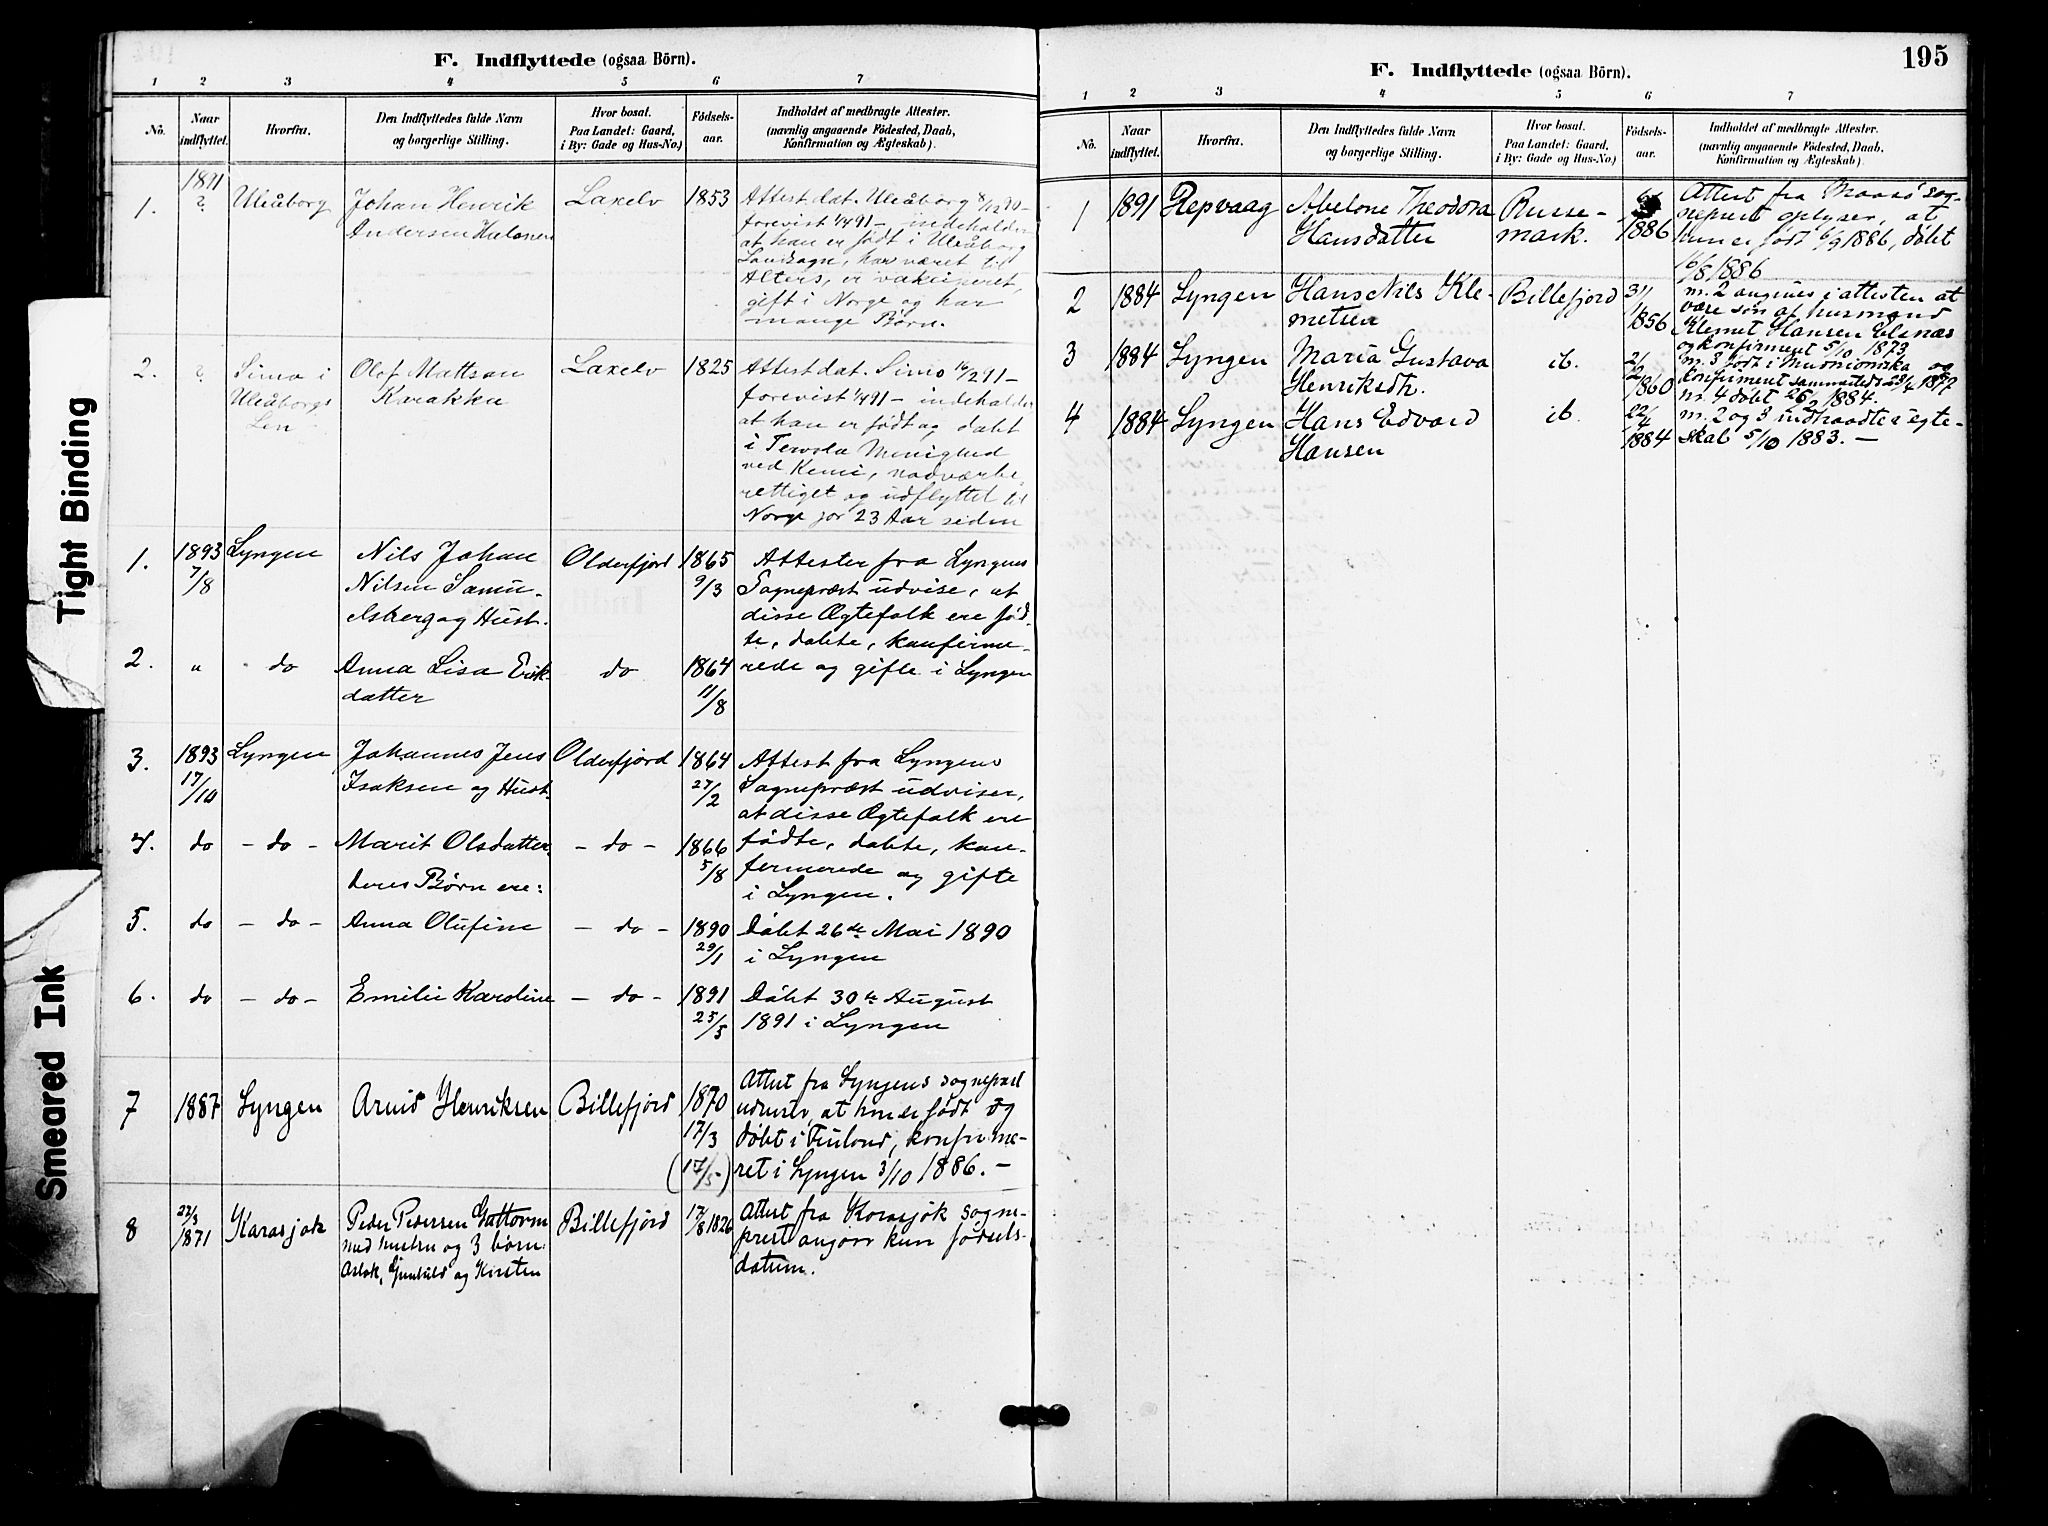 Tight Binding
Smeared Ink
F. Indflyttede (ogsaa Börn).
1 2 3 4 5 6 7
No.
Naar indflyttet.
Hvorfra.
Den Indflyttedes fulde Navn
og borgerlige Stilling.
Hvor bosat.
Paa Landet: Gaard,
i By: Gade og Hus-No.)
Födsels-
aar.
Indholdet af medbragte Attester.
(navnlig angaaende Födested, Daab,
Konfirmation og Ægteskab).
1. 1891 ? Uleåborg Johan Henrik Laxelv 1853 Attest dat. Uleåborg 8/12 90 –
Andersen
forevist 1/4 91 – indeholder
at han er født i Uleåborg
Landsogn, har været til
Alters, er vakcineret,
gift i Norge og har
mange Børn.
2. ? Simo i Olof Mattsan Laxelv 1825 Attest dat. Simo 16/2 91 –
Uleåborgs Karakka forevist 1/4 91 – indeholder
Len at han er født og døbt
i Tervola Menighed
ved Kemi, nadverbe-
rettiget og udflyttet til
Norge for 23 Aar siden
1. 1893 Lyngen Nils Johan Olderfjord 1865 Attester fra Lyngens
7/8 Nilsen Samu- 9/3 Sognepræst udvise, at
elsberg og Hust. disse Ægtefolk ere fød-
te, døbte, konfirme-
2. " do Anna Lisa Erik- do 1864 rede og gifte i Lyngen
datter 11/8
3. 1893 Lyngen Johannes Jens Olderfjord 1864 Attest fra Lyngens
17/10 Isaksen og Hust. 27/2 Sognepræst udviser,
at disse Ægtefolk ere
4. do – do – Marit Olsdatter. – do – 1866 fødte, døbte, kon-
5/8 firmerede og gifte
deres Børn ere: i Lyngen.
5. do – do – Anna Olufine – do – 1890 Døbt 26de Mai 1890
29/1 i Lyngen
6. do – do – Emilie Karoline – do – 1891 Døbt 30te August
25/5 1891 i Lyngen
7 1887 Lyngen Arvid Henriksen Billefjord 1870 Attest fra Lyngens sognepræst
17/3 at han er født og
døbt i Finland, konfirme-
(17/5) ret i Lyngen 3/10 1886. –
8 22/3 1871 Karasjok Peder Pedersen Billefjord 17/8 1826 Attest fra Karasjok sogne-
med hustru og 3 børn: prest angaar kun fødsels-
Aslak, Gunhild og Kirsten datum.
195
F. Indflyttede (ogsaa Börn).
1 2 3 4 5 6 7
No.
Naar
indflyttet.
Hvorfra.
Den Indflyttedes fulde Navn
og borgerlige Stilling.
Hvor bosat.
Paa Landet: Gaard,
i By: Gade og Hus-No.)
Födsels-
aar.
Indholdet af medbragte Attester.
(navnlig angaaende Födested, Daab,
Konfirmation og Ægteskab).
1 1891 Repvaag Abelone Theodora Russe- 1886 Attest fra Maasø sog-
Hansdatter mark. neprest oplyser, at
hun er født 6/9 1886, døbt
16/8 1886
2 1884 Lyngen Hans Nils Kle- Billefjord 31/1 1856 nr. 2 angives i attesten at
metsen være søn af husmand
Klemet Hansen
og konfirmert 5/10 1873
3 1884 Lyngen Maria Gustava ib. 2/2 1860 nr. 3 født i Muonioniska og
Henriksdtr. konfirmert sammesteds 1877
nr. 4 døbt 26/ 1884.
4 1884 Lyngen Hans Edvard ib 22/4 1884 nr. 2 og 3 indtraadte i egte-
Hansen skab 5/10 1883. –